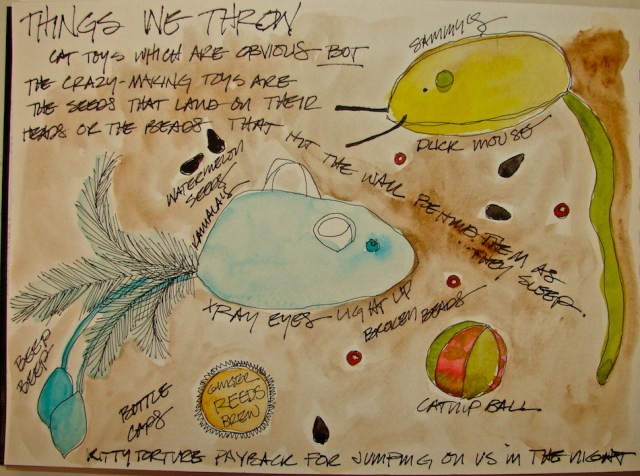 THINGS WE THROW
CAT TOYS WHICH ARE OBVIOUS BUT
THE CRAZY-MAKING TOYS ARE
THE SEEDS THAT LAND ON THEIR
HEADS OR THE BEADS THAT HIT THE WALL BEHIND THEM AS
... THEY SLEEP.
SAMMY'S
DUCK MOUSE
WATERMELON
SEEDS
KAMALA'S
XRAY EYES LIGHT UP
BROKEN BEADS
BEEP
BEEP
BOTTLE
CAPS
GINGER
REEDS
BREW
CATNIP BALL
KITTY TORTURE PAYBACK FOR JUMPING ON US IN THE NIGHT